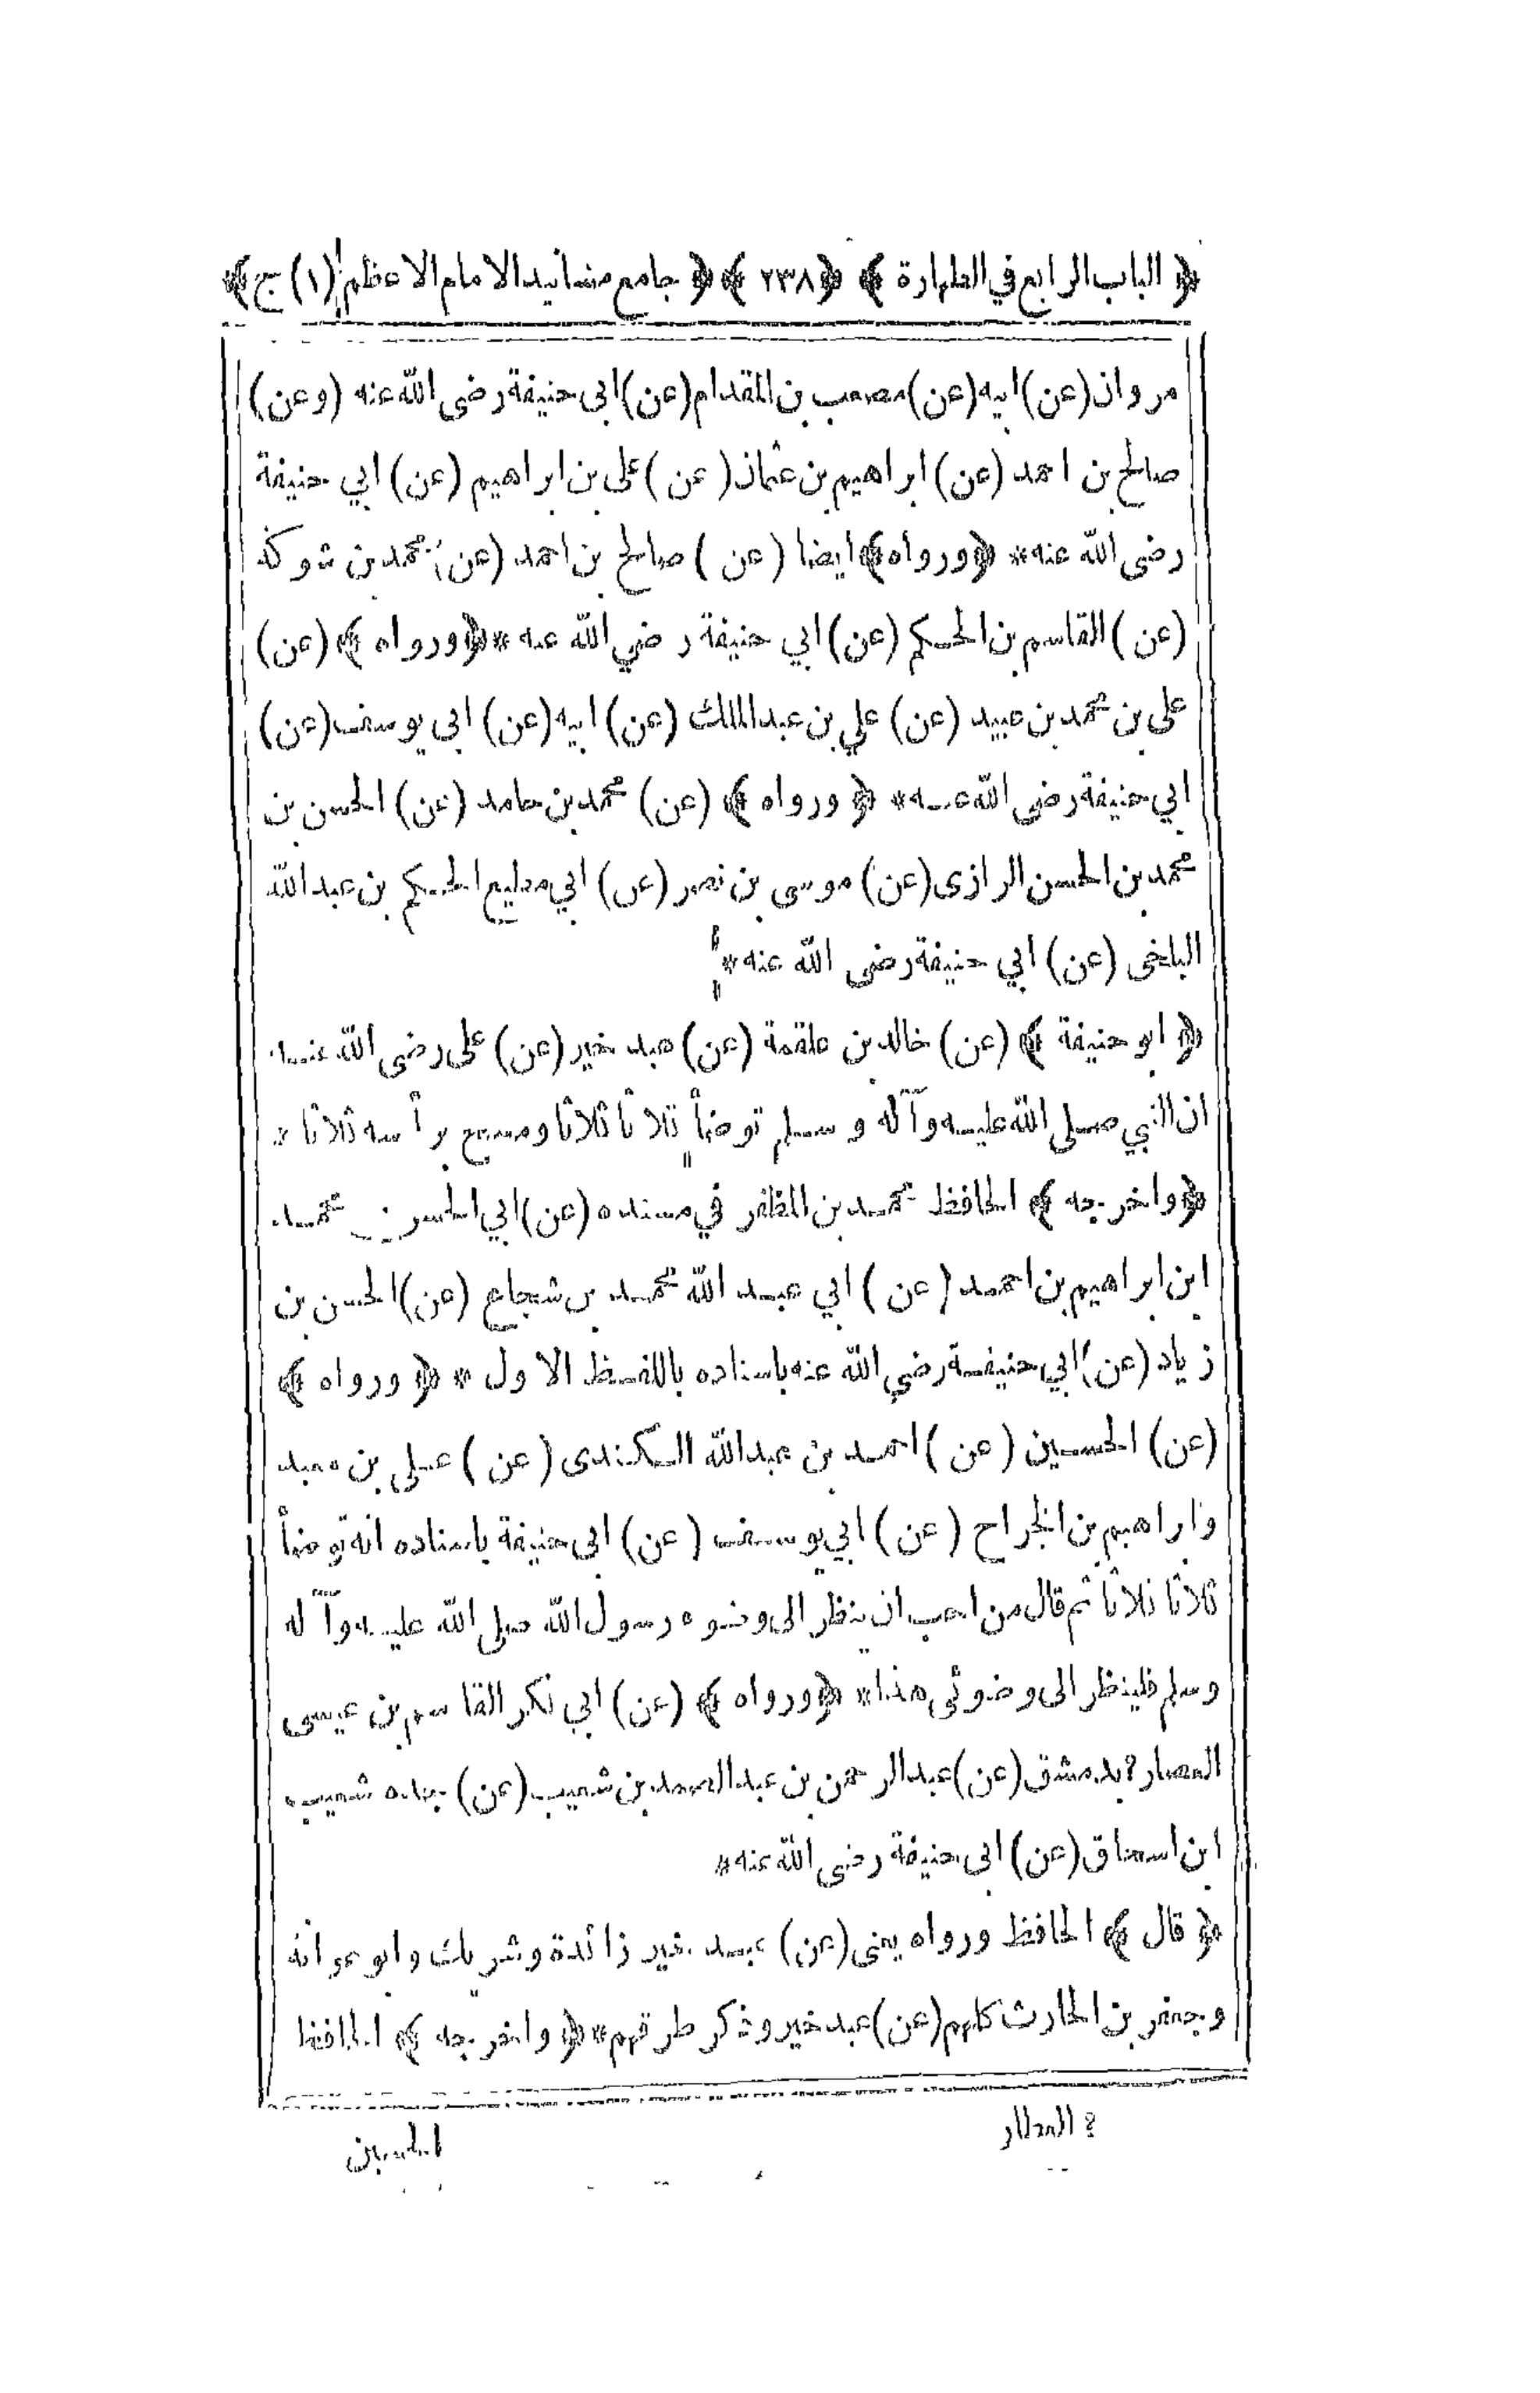 ﴿ الباب الرابع في الطهارة ﴾ ﴿ ٢٣٨ ﴾ ﴿ جامع مسانيد الامام الاعظم (١) ج ﴾
مروان (عن) ابيه (عن) مصعب بن المقدام (عن) ابى حنيفة رضى الله عنه (وعن)
صالح بن احمد (عن) ابراهيم بن عثمان (عن) على بن ابراهيم (عن) ابي حنيفة
رضى الله عنه * ﴿ ورواه ﴾ ايضا (عن) صالح بن احمد (عن) محمد بن شوكة
(عن) القاسم بن الحكم (عن) ابي حنيفة رضي الله عنه * ﴿ ورواه ﴾ (عن)
على بن محمد بن عبيد (عن) علي بن عبد الملك (عن) ابيه (عن) ابى يوسف (عن)
ابي حنيفة رضى الله عنه * ﴿ ورواه ﴾ (عن) محمد بن حامد (عن) الحسن بن
محمد بن الحسن الرازى (عن) موسى بن نصر (عن) ابي مطيع الحكم بن عبد الله
البلخى (عن) ابي حنيفة رضى الله عنه *
﴿ ابو حنيفة ﴾ (عن) خالد بن علقمة (عن) عبد خير (عن) على رضى الله عنه
ان النبي صلى الله عليه وآله وسلم توضأ ثلاثا ثلاثا ومسح برأسه ثلاثا *
﴿ واخرجه ﴾ الحافظ محمد بن المظفر في مسنده (عن) ابي الحسن محمد
ابن ابراهيم بن احمد (عن) ابي عبد الله محمد بن شجاع (عن) الحسن بن
زياد (عن) ابي حنيفة رضي الله عنه باسناده باللفظ الاول * ﴿ ورواه ﴾
(عن) الحسين (عن) احمد بن عبد الله الكندى (عن) على بن معبد
وابراهيم بن الجراح (عن) ابي يوسف (عن) ابى حنيفة باسناده انه توضأ
ثلاثا ثلاثا ثم قال من احب ان ينظر الى وضوء رسول الله صلى الله عليه وآله
وسلم فلينظر الى وضوئى هذا * ﴿ ورواه ﴾ (عن) ابي بكر القاسم بن عيسى
العصار ؟ بدمشق (عن) عبد الرحمن بن عبد الصمد بن شعيب (عن) جده شعيب
ابن اسحاق (عن) ابى حنيفة رضى الله عنه *
﴿ قال ﴾ الحافظ ورواه يعنى (عن) عبد خير زائدة وشريك وابو عوانة
وجعفر بن الحارث كلهم (عن) عبد خير وذكر طرقهم * ﴿ واخرجه ﴾ الحافظ
؟ العطار
الحسين